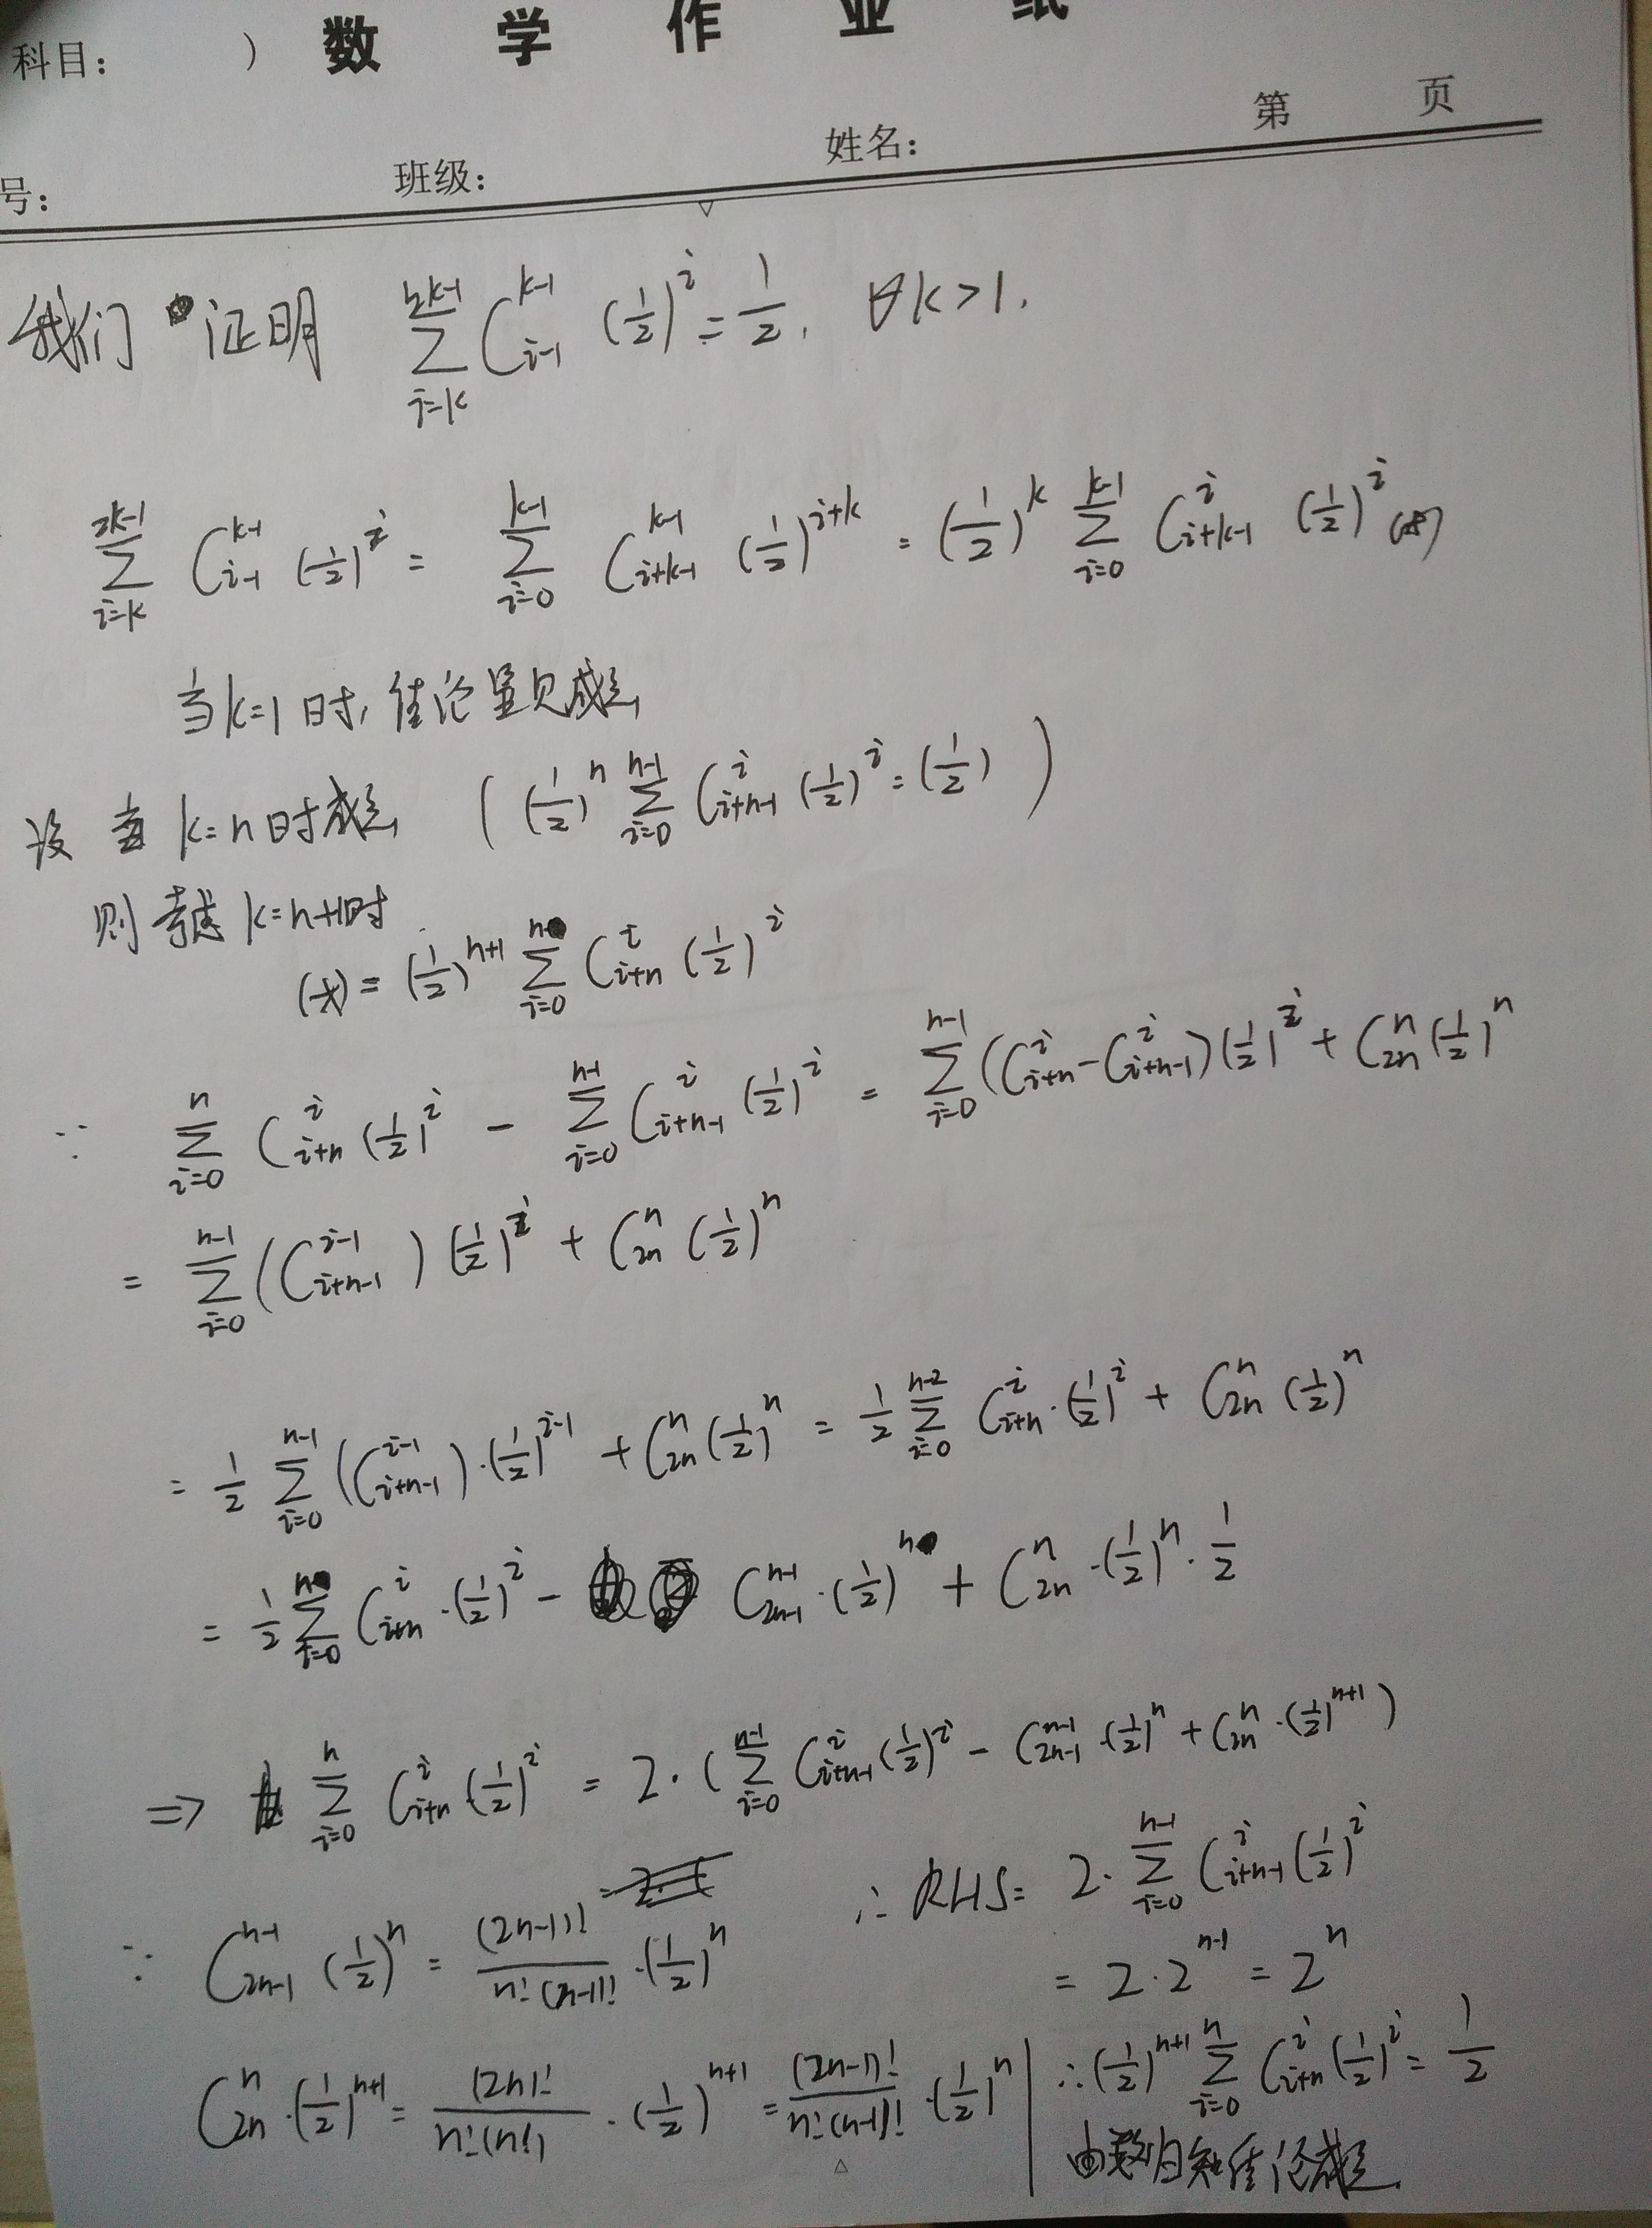 科目： ） 数 学 作 业 纸
第 页
号： 班级： 姓名：
我们 证明 $\sum_{i=k}^{2k-1} C_{i-1}^{k-1} (\frac{1}{2})^i = \frac{1}{2}, \forall k>1.$
$\sum_{i=k}^{2k-1} C_{i-1}^{k-1} (\frac{1}{2})^i = \sum_{i=0}^{k-1} C_{i+k-1}^{k-1} (\frac{1}{2})^{i+k} = (\frac{1}{2})^k \sum_{i=0}^{k-1} C_{i+k-1}^{i} (\frac{1}{2})^i (*)$
当k=1时，结论显见成立
设当 k=n时成立 $( (\frac{1}{2})^n \sum_{i=0}^{n-1} C_{i+n-1}^{i} (\frac{1}{2})^i = (\frac{1}{2}) )$
则考虑 k=n+1时
$(*) = (\frac{1}{2})^{n+1} \sum_{i=0}^{n} C_{i+n}^{i} (\frac{1}{2})^i$
$\because \sum_{i=0}^{n} C_{i+n}^{i} (\frac{1}{2})^i - \sum_{i=0}^{n-1} C_{i+n-1}^{i} (\frac{1}{2})^i = \sum_{i=0}^{n-1} (C_{i+n}^{i} - C_{i+n-1}^{i}) (\frac{1}{2})^i + C_{2n}^{n} (\frac{1}{2})^n$
$= \sum_{i=0}^{n-1} (C_{i+n-1}^{i-1}) (\frac{1}{2})^i + C_{2n}^{n} (\frac{1}{2})^n$
$= \frac{1}{2} \sum_{i=0}^{n-1} (C_{i+n-1}^{i-1}) \cdot (\frac{1}{2})^{i-1} + C_{2n}^{n} (\frac{1}{2})^n = \frac{1}{2} \sum_{i=0}^{n-2} C_{i+n}^{i} \cdot (\frac{1}{2})^i + C_{2n}^{n} (\frac{1}{2})^n$
$= \frac{1}{2} \sum_{i=0}^{n} C_{i+n}^{i} \cdot (\frac{1}{2})^i - C_{2n-1}^{n-1} \cdot (\frac{1}{2})^n + C_{2n}^{n} \cdot (\frac{1}{2})^n \cdot \frac{1}{2}$
$\Rightarrow \sum_{i=0}^{n} C_{i+n}^{i} (\frac{1}{2})^i = 2 \cdot ( \sum_{i=0}^{n-1} C_{i+n-1}^{i} (\frac{1}{2})^i - C_{2n-1}^{n-1} \cdot (\frac{1}{2})^n + C_{2n}^{n} \cdot (\frac{1}{2})^{n+1} )$
$\because C_{2n-1}^{n-1} (\frac{1}{2})^n = \frac{(2n-1)!}{n! \cdot (n-1)!} \cdot (\frac{1}{2})^n$
$C_{2n}^{n} \cdot (\frac{1}{2})^{n+1} = \frac{(2n)!}{n! \cdot (n!)} \cdot (\frac{1}{2})^{n+1} = \frac{(2n-1)!}{n! \cdot (n-1)!} \cdot (\frac{1}{2})^n$
$\therefore RHS = 2 \cdot \sum_{i=0}^{n-1} C_{i+n-1}^{i} (\frac{1}{2})^i$
$= 2 \cdot 2^{n-1} = 2^n$
$\therefore (\frac{1}{2})^{n+1} \sum_{i=0}^{n} C_{i+n}^{i} (\frac{1}{2})^i = \frac{1}{2}$
由数归知结论成立.